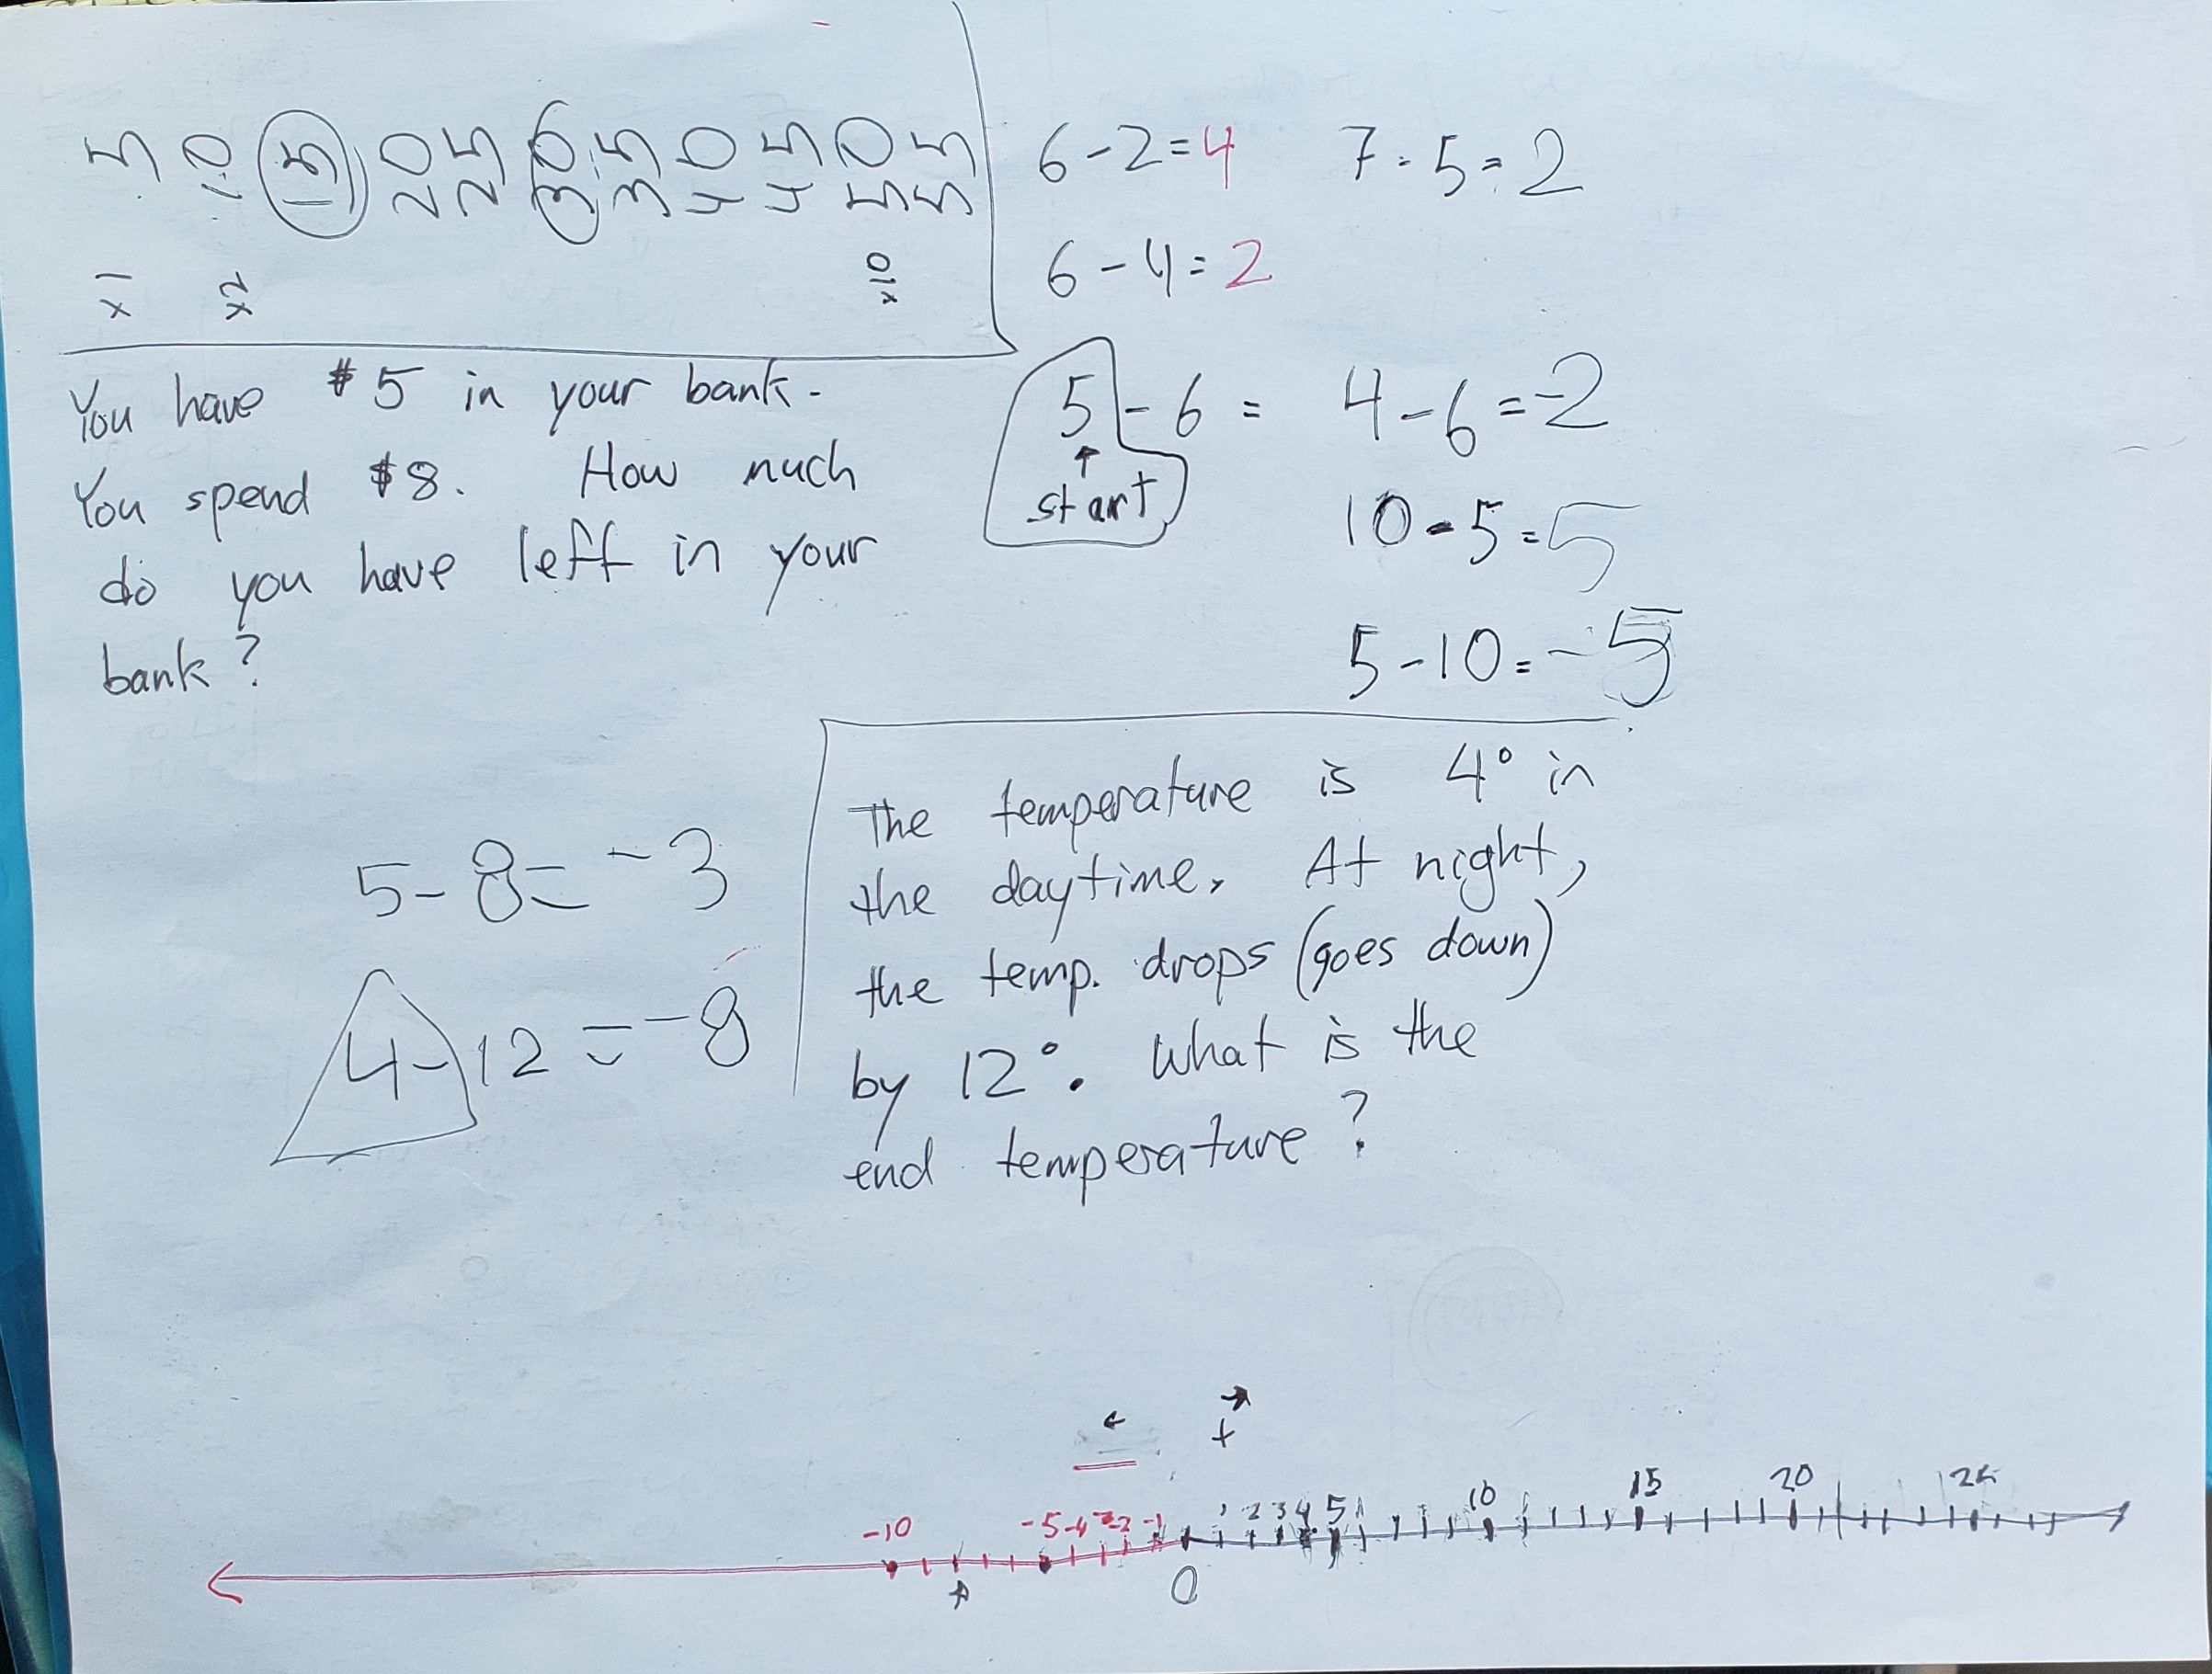 5 10 15 20 25 30 35 40 45 50 55
x1 x2 x10
You have $5 in your bank.
You spend $8. How much
do you have left in your
bank?
6-2=4 7-5=2
6-4=2
5-6= 4-6=-2
start
10-5=5
5-10=-5
5-8=-3
4-12=-8
The temperature is 4° in
the daytime. At night,
the temp. drops (goes down)
by 12°. What is the
end temperature?
+
-10 -5 -4 -3 -2 -1 0 1 2 3 4 5 10 15 20 25